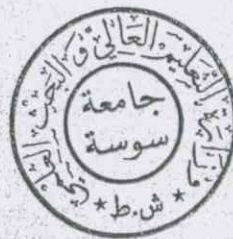 وزارة التعليم العالي و البحث العلمي
جامعة
سوسة
* ش.ط *